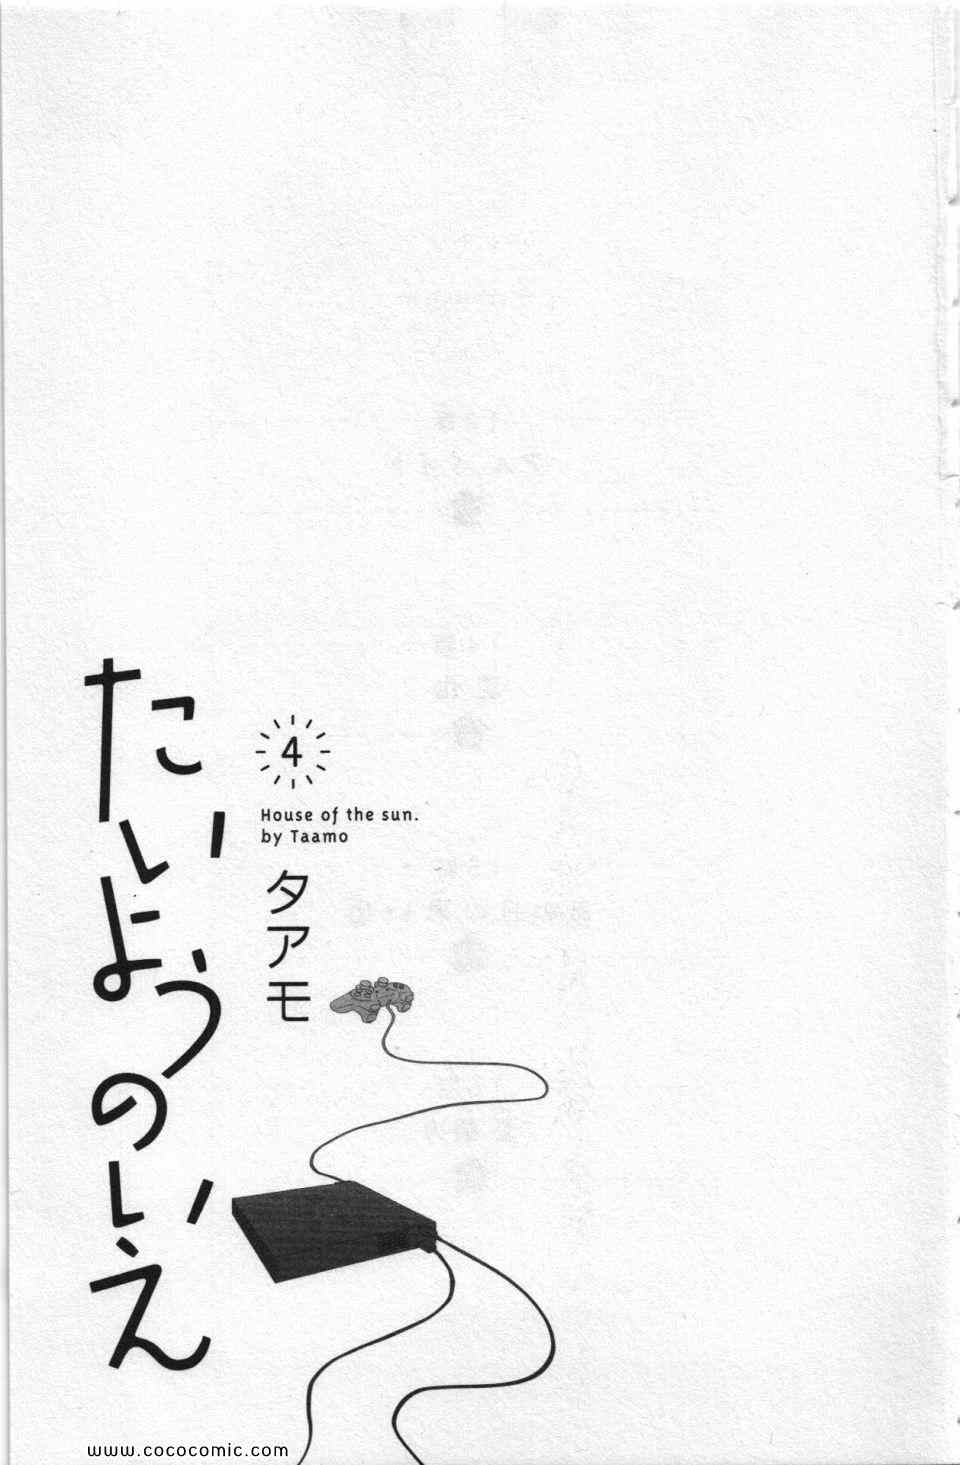 たいようのいえ
4
House of the sun.
by Taamo
タアモ
www.cococomic.com